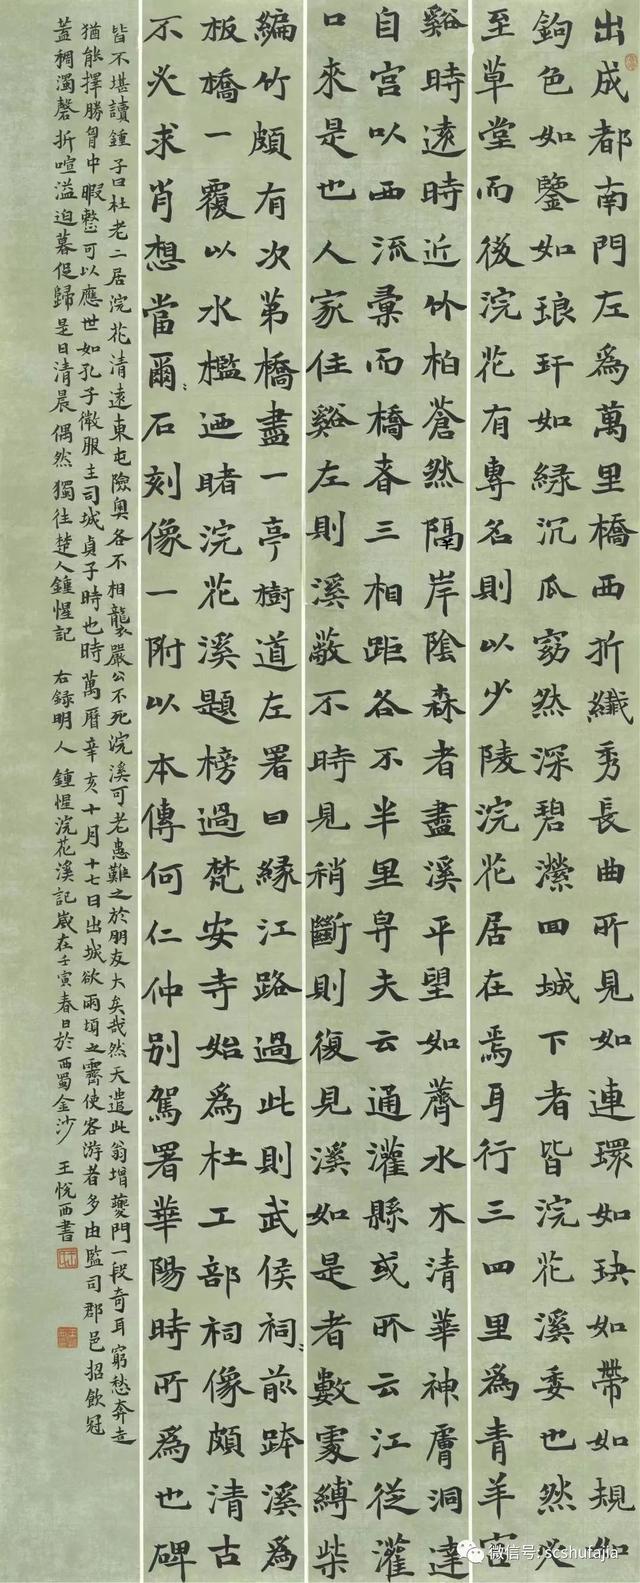 出成都南門左爲萬里橋西折纖秀長曲所見如連環如玦如帶如規如
鉤色如鑒如琅玕如緑沉瓜窈然深碧瀠回城下者皆浣花溪委也然必
至草堂而後浣花有專名則以少陵浣花居在焉耳行三四里爲青羊宮
谿時遠時近竹柏蒼然隔岸陰森者盡溪平望如薺水木清華神膚洞達
自宮以西流彙而橋者三相距各不半里舁夫云通灌縣或所云江從灌
口來是也人家住谿左則溪蔽不時見稍斷則復見溪如是者數處縛柴
編竹頗有次第橋盡一亭樹道左署曰緣江路過此則武侯祠〻前跨溪爲
板橋一覆以水檻迺睹浣花溪題榜過梵安寺始爲杜工部祠像頗清古
不必求肖想當爾〻石刻像一附以本傳何仁仲別駕署華陽時所爲也碑
皆不堪讀鍾子曰杜老二居浣花清遠東屯險奧各不相襲嚴公不死浣溪可老患難之於朋友大矣哉然天遣此翁增夔門一段奇耳窮愁奔走
猶能擇勝胷中暇整可以應世如孔子微服主司城貞子時也時萬曆辛亥十月十七日出城欲雨頃之霽使客游者多由監司郡邑招飲冠
蓋稠濁磬折喧溢迫暮促歸是日清晨偶然獨往楚人鍾惺記 右録明人鍾惺浣花溪記歲在壬寅春日於西蜀金沙 王悅西書
微信号: scshufajia